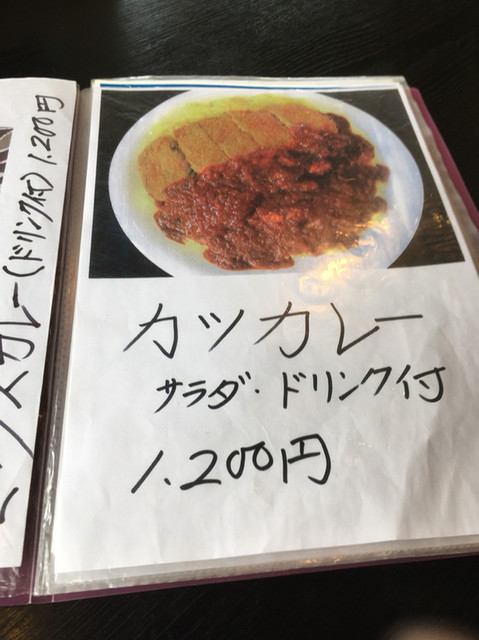 カレー(ドリンク付)1.200円
カツカレー
サラダ・ドリンク付
1.200円